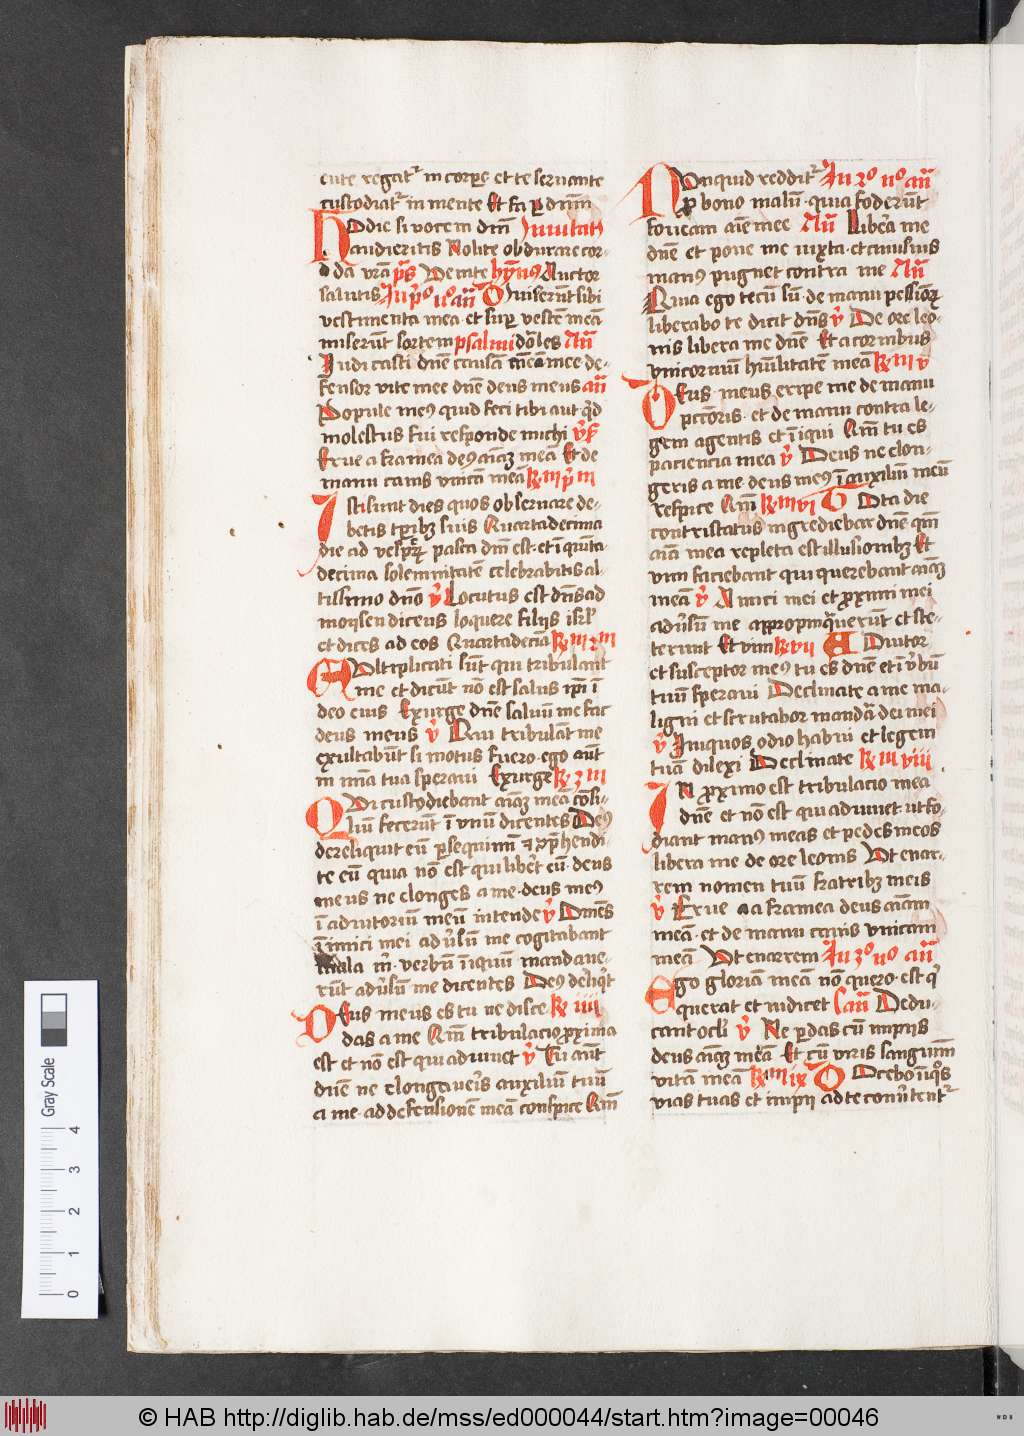 cute regat᷑ in corpore et te seruante
custodiat᷑ in mente Et fa p dnm
Hodie si vocem dnī Inuitat
audieritis Nolite obdurare cor-
da vra ps̄ Venite hymnus Auctor
salutis In pº nº an̄ Diuiserūt sibi
vestimenta mea et sup vestē meā
miserūt sortem psalmi dōles An̄
Iudicasti dnē causā anime mee de-
fensor vite mee dnē deus meus an̄
Popule me9 quid feci tibi aut qd
molestus fui responde michi
Erue a framea de9 aīaz meā Et de
manu canis vnicā meā
Isti sunt dies quos obseruare de-
betis tpibz suis Quartadecima
die ad vesperū pasca dnī est et ī quīta-
decima solemnitatē celebrabitis al-
tissimo dnō v̄ Locutus est dnūs ad
moysen dicens loquere filijs isrl
et dices ad eos Quartadecīa
Multiplicati sūt qui tribulant
me et dicūt nō est salus ipī ī
deo eius Exurge dnē saluū me fac
deus meus v̄ Qui tribulāt me
exultabūt si motus fuero ego aūt
in mīa tua speraui Exurge
Qui custodiebant aīaz meā cōsi-
liū fecerūt ī vnū dicentes De9
dereliquit eū psequimī et cōphendi-
te eū quia nō est qui libēt eū deus
meus ne elonges a me deus me9
ī adiutoriū meū intende v̄ Omēs
īimici mei adūsū me cogitabant
mala m verbū īiquū mandaue-
rūt adūsū me dicentes De9 dehqt
Deus meus es tu ne disce iiii
das a me Qm̄ tribulacio pxima
est et nō est qui adiuuet v̄ Tu aūt
dnē ne elongaueris auxiliū tuū
a me ad defensionē meā conspice Qm̄
Nunquid reddit᷑ In 2º nº an̄
p bono malū quia foderūt
foueam aīe mee An̄ Libera me
dnē et pone me iuxta et cuiusuis
man9 pugnet contra me An̄
Quia ego tecū sū de manu pessiorꝝ
liberabo te dicit dns v̄ De ore leo-
nis libera me dnē Et a cornibus
vnicornuū hūilitatē meā
Deus meus eripe me de manu
pctōris et de manu contra le-
gem agentis et īiqui Qm̄ tu es
paciencia mea v̄ Deus ne elon-
geris a me deus me9 ī auxiliū meū
respice Qm̄ vi Tota die
contristatus ingrediebar dnē qm̄
aīa mea repleta est illusionibz Et
vim faciebant qui querebant aīaz
meā v̄ Amici mei et pximi mei
adūsū me appropinquauerūt et ste-
terunt Et vim vii Adiutor
et susceptor me9 tu es dnē et ī vbū
tuū speraui Declinate a me ma-
ligni et scrutabor mandata dei mei
v̄ Iniquos odio habui et legem
tuā dilexi Declinate viii
In pximo est tribulacio mea
dnē et nō est qui adiuuet ut fo-
diant man9 meas et pedes meos
libera me de ore leonis Vt enar-
rem nomen tuū fratribz meis
v̄ Erue a framea deus aīam
meā et de manu canis vnicam
meā Vt enarrem In 3º nº an̄
Ego gloriam meā nō quero est q
querat et iudicet an̄ Dedu-
cant ocli v̄ Ne perdas cū impijs
deus aīaz meā Et cū viris sanguinū
vitā meā ix Docebo īiqos
vias tuas et impij ad te conūtent᷑
0 1 2 3 4 Gray Scale
© HAB http://diglib.hab.de/mss/ed000044/start.htm?image=00046